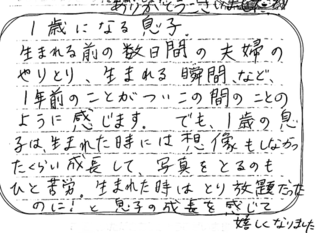 ありがとう
1歳になる息子。
生まれる前の数日間の夫婦の
やりとり、生まれる瞬間、など、
1年前のことがついこの間のことの
ように感じます。でも、1歳の息
子は、生まれた時には想像もしなかっ
たくらい成長して、写真をとるのも
ひと苦労。生まれた時はとり放題だった
のに!と息子の成長を感じて
嬉しくなりました